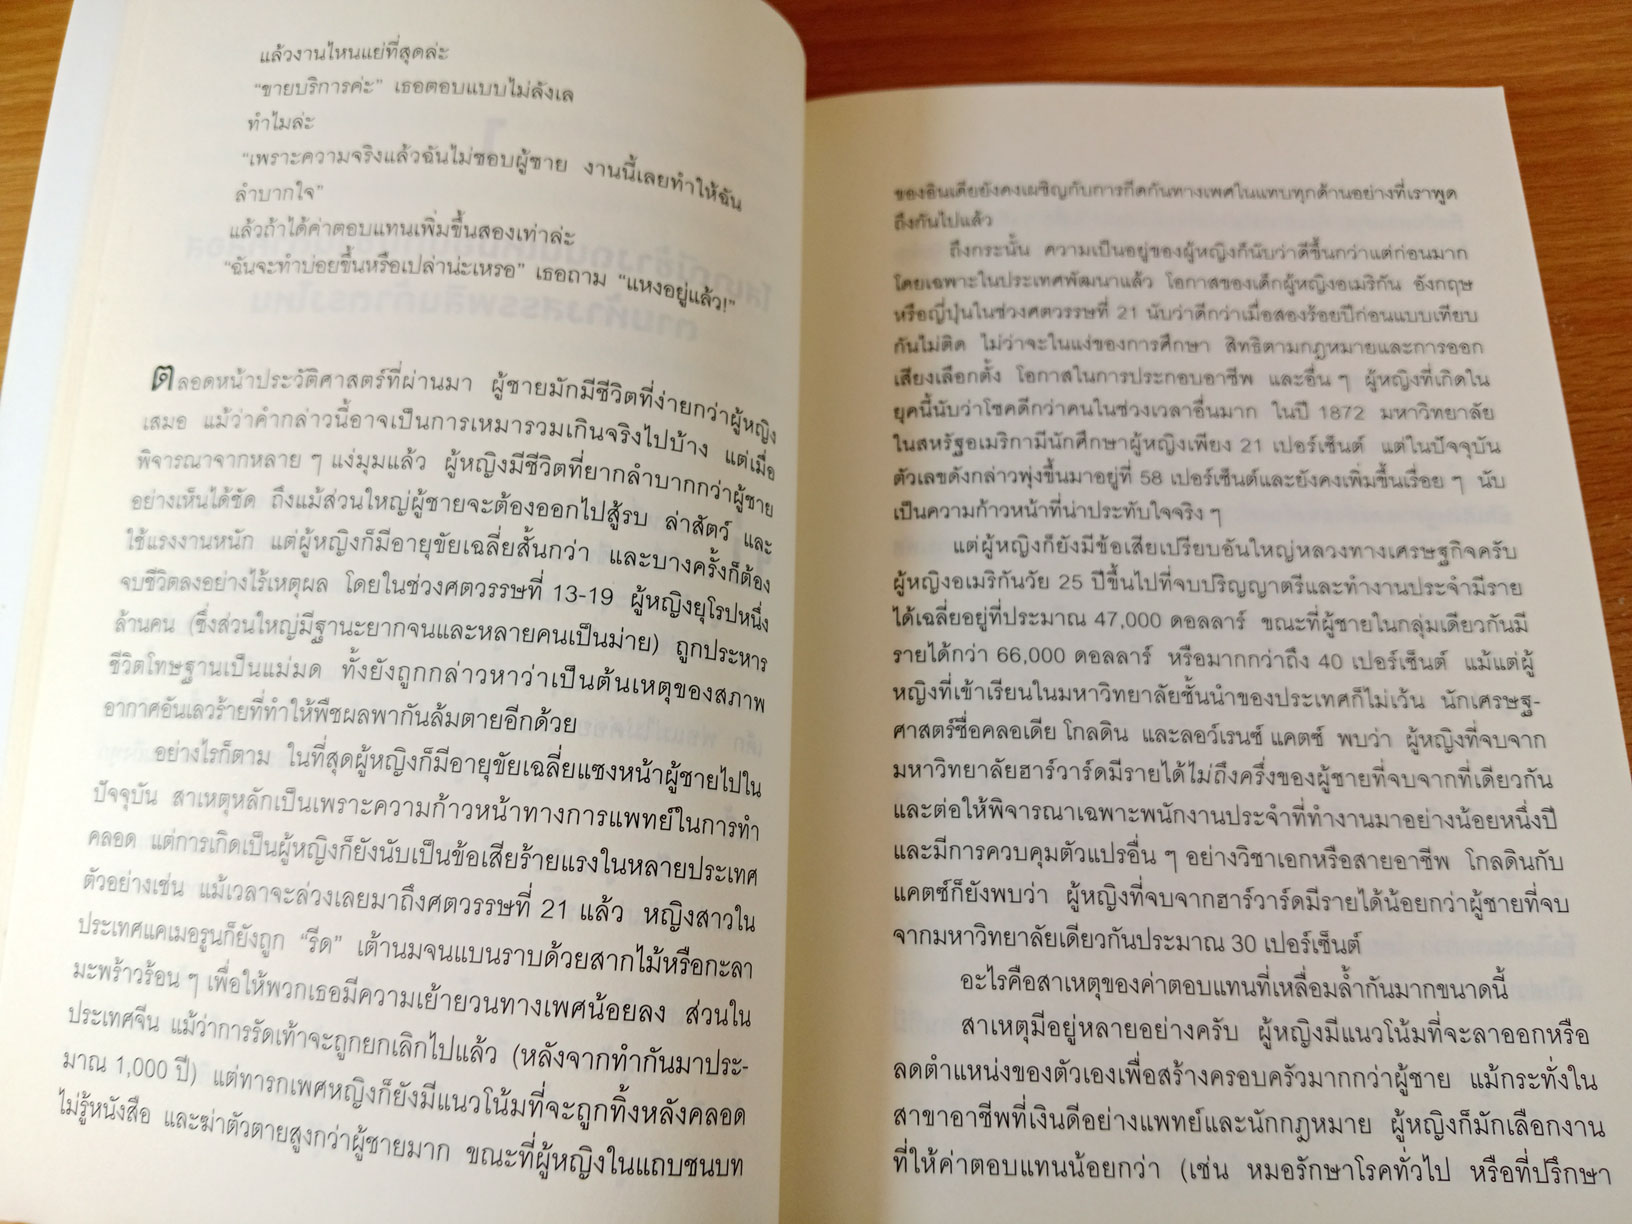 แล้วงานไหนแย่ที่สุดล่ะ
“ขายบริการค่ะ” เธอตอบแบบไม่ลังเล
ทำไมล่ะ
“เพราะความจริงแล้วฉันไม่ชอบผู้ชาย งานนี้เลยทำให้ฉัน
ลำบากใจ”
แล้วถ้าได้ค่าตอบแทนเพิ่มขึ้นสองเท่าล่ะ
“ฉันจะทำบ่อยขึ้นหรือเปล่าน่ะเหรอ” เธอถาม “แหงอยู่แล้ว!”
ตลอดหน้าประวัติศาสตร์ที่ผ่านมา ผู้ชายมักมีชีวิตที่ง่ายกว่าผู้หญิง
เสมอ แม้ว่าคำกล่าวนี้อาจเป็นการเหมารวมเกินจริงไปบ้าง แต่เมื่อ
พิจารณาจากหลาย ๆ แง่มุมแล้ว ผู้หญิงมีชีวิตที่ยากลำบากกว่าผู้ชาย
อย่างเห็นได้ชัด ถึงแม้ส่วนใหญ่ผู้ชายจะต้องออกไปสู้รบ ล่าสัตว์ และ
ใช้แรงงานหนัก แต่ผู้หญิงก็มีอายุขัยเฉลี่ยสั้นกว่า และบางครั้งก็ต้อง
จบชีวิตลงอย่างไร้เหตุผล โดยในช่วงศตวรรษที่ 13-19 ผู้หญิงยุโรปหนึ่ง
ล้านคน (ซึ่งส่วนใหญ่มีฐานะยากจนและหลายคนเป็นม่าย) ถูกประหาร
ชีวิตโทษฐานเป็นแม่มด ทั้งยังถูกกล่าวหาว่าเป็นต้นเหตุของสภาพ
อากาศอันเลวร้ายที่ทำให้พืชผลพากันล้มตายอีกด้วย
อย่างไรก็ตาม ในที่สุดผู้หญิงก็มีอายุขัยเฉลี่ยแซงหน้าผู้ชายไปใน
ปัจจุบัน สาเหตุหลักเป็นเพราะความก้าวหน้าทางการแพทย์ในการทำ
คลอด แต่การเกิดเป็นผู้หญิงก็ยังนับเป็นข้อเสียร้ายแรงในหลายประเทศ
ตัวอย่างเช่น แม้เวลาจะล่วงเลยมาถึงศตวรรษที่ 21 แล้ว หญิงสาวใน
ประเทศแคเมอรูนก็ยังถูก “รีด” เต้านมจนแบนราบด้วยสากไม้หรือกะลา
มะพร้าวร้อน ๆ เพื่อให้พวกเธอมีความเย้ายวนทางเพศน้อยลง ส่วนใน
ประเทศจีน แม้ว่าการรัดเท้าจะถูกยกเลิกไปแล้ว (หลังจากทำกันมาประ-
มาณ 1,000 ปี) แต่ทารกเพศหญิงก็ยังมีแนวโน้มที่จะถูกทิ้งหลังคลอด
ไม่รู้หนังสือ และฆ่าตัวตายสูงกว่าผู้ชายมาก ขณะที่ผู้หญิงในแถบชนบท
ของอินเดียยังคงเผชิญกับการกีดกันทางเพศในแทบทุกด้านอย่างที่เราพูด
ถึงกันไปแล้ว
ถึงกระนั้น ความเป็นอยู่ของผู้หญิงก็นับว่าดีขึ้นกว่าแต่ก่อนมาก
โดยเฉพาะในประเทศพัฒนาแล้ว โอกาสของเด็กผู้หญิงอเมริกัน อังกฤษ
หรือญี่ปุ่นในช่วงศตวรรษที่ 21 นับว่าดีกว่าเมื่อสองร้อยปีก่อนแบบเทียบ
กันไม่ติด ไม่ว่าจะในแง่ของการศึกษา สิทธิตามกฎหมายและการออก
เสียงเลือกตั้ง โอกาสในการประกอบอาชีพ และอื่น ๆ ผู้หญิงที่เกิดใน
ยุคนี้นับว่าโชคดีกว่าคนในช่วงเวลาอื่นมาก ในปี 1872 มหาวิทยาลัย
ในสหรัฐอเมริกามีนักศึกษาผู้หญิงเพียง 21 เปอร์เซ็นต์ แต่ในปัจจุบัน
ตัวเลขดังกล่าวพุ่งขึ้นมาอยู่ที่ 58 เปอร์เซ็นต์และยังคงเพิ่มขึ้นเรื่อย ๆ นับ
เป็นความก้าวหน้าที่น่าประทับใจจริง ๆ
แต่ผู้หญิงก็ยังมีข้อเสียเปรียบอันใหญ่หลวงทางเศรษฐกิจครับ
ผู้หญิงอเมริกันวัย 25 ปีขึ้นไปที่จบปริญญาตรีและทำงานประจำมีราย
ได้เฉลี่ยอยู่ที่ประมาณ 47,000 ดอลลาร์ ขณะที่ผู้ชายในกลุ่มเดียวกันมี
รายได้กว่า 66,000 ดอลลาร์ หรือมากกว่าถึง 40 เปอร์เซ็นต์ แม้แต่ผู้
หญิงที่เข้าเรียนในมหาวิทยาลัยชั้นนำของประเทศก็ไม่เว้น นักเศรษฐ-
ศาสตร์ชื่อคลอเดีย โกลดิน และลอว์เรนซ์ แคตซ์ พบว่า ผู้หญิงที่จบจาก
มหาวิทยาลัยฮาร์วาร์ดมีรายได้ไม่ถึงครึ่งของผู้ชายที่จบจากที่เดียวกัน
และต่อให้พิจารณาเฉพาะพนักงานประจำที่ทำงานมาอย่างน้อยหนึ่งปี
และมีการควบคุมตัวแปรอื่น ๆ อย่างวิชาเอกหรือสายอาชีพ โกลดินกับ
แคตซ์ก็ยังพบว่า ผู้หญิงที่จบจากฮาร์วาร์ดมีรายได้น้อยกว่าผู้ชายที่จบ
จากมหาวิทยาลัยเดียวกันประมาณ 30 เปอร์เซ็นต์
อะไรคือสาเหตุของค่าตอบแทนที่เหลื่อมล้ำกันมากขนาดนี้
สาเหตุมีอยู่หลายอย่างครับ ผู้หญิงมีแนวโน้มที่จะลาออกหรือ
ลดตำแหน่งของตัวเองเพื่อสร้างครอบครัวมากกว่าผู้ชาย แม้กระทั่งใน
สาขาอาชีพที่เงินดีอย่างแพทย์และนักกฎหมาย ผู้หญิงก็มักเลือกงาน
ที่ให้ค่าตอบแทนน้อยกว่า (เช่น หมอรักษาโรคทั่วไป หรือที่ปรึกษา